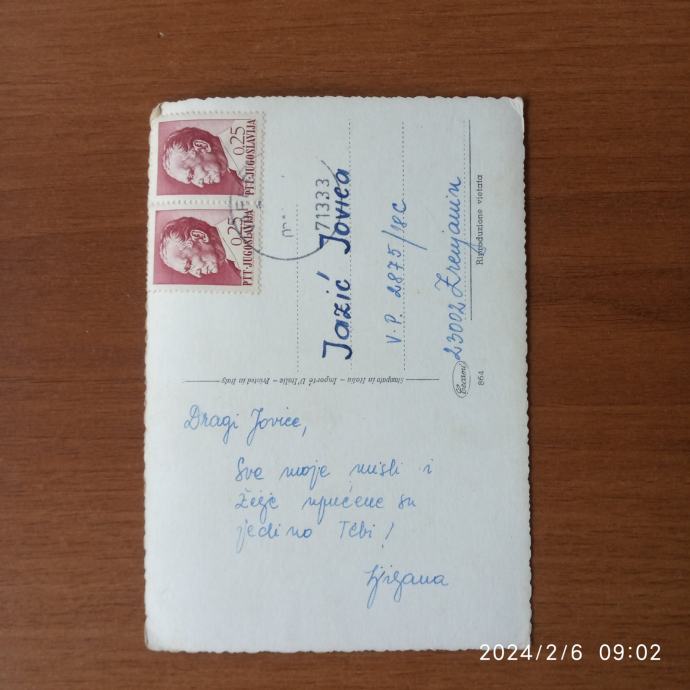 Dragi Jovice,
Sve moje misli i
želje upućene su
jedino Tebi!
Ljiljana
Jazić Jovica
V.P. 2875/18c
23002 Zrenjanin
Riproduzione vietata
864
Stampato in Italia – Importé D'Italie – Printed in Italy
0.25
PTT-JUGOSLAVIJA
0.25
PTT-JUGOSLAVIJA
71333
2024/2/6 09:02